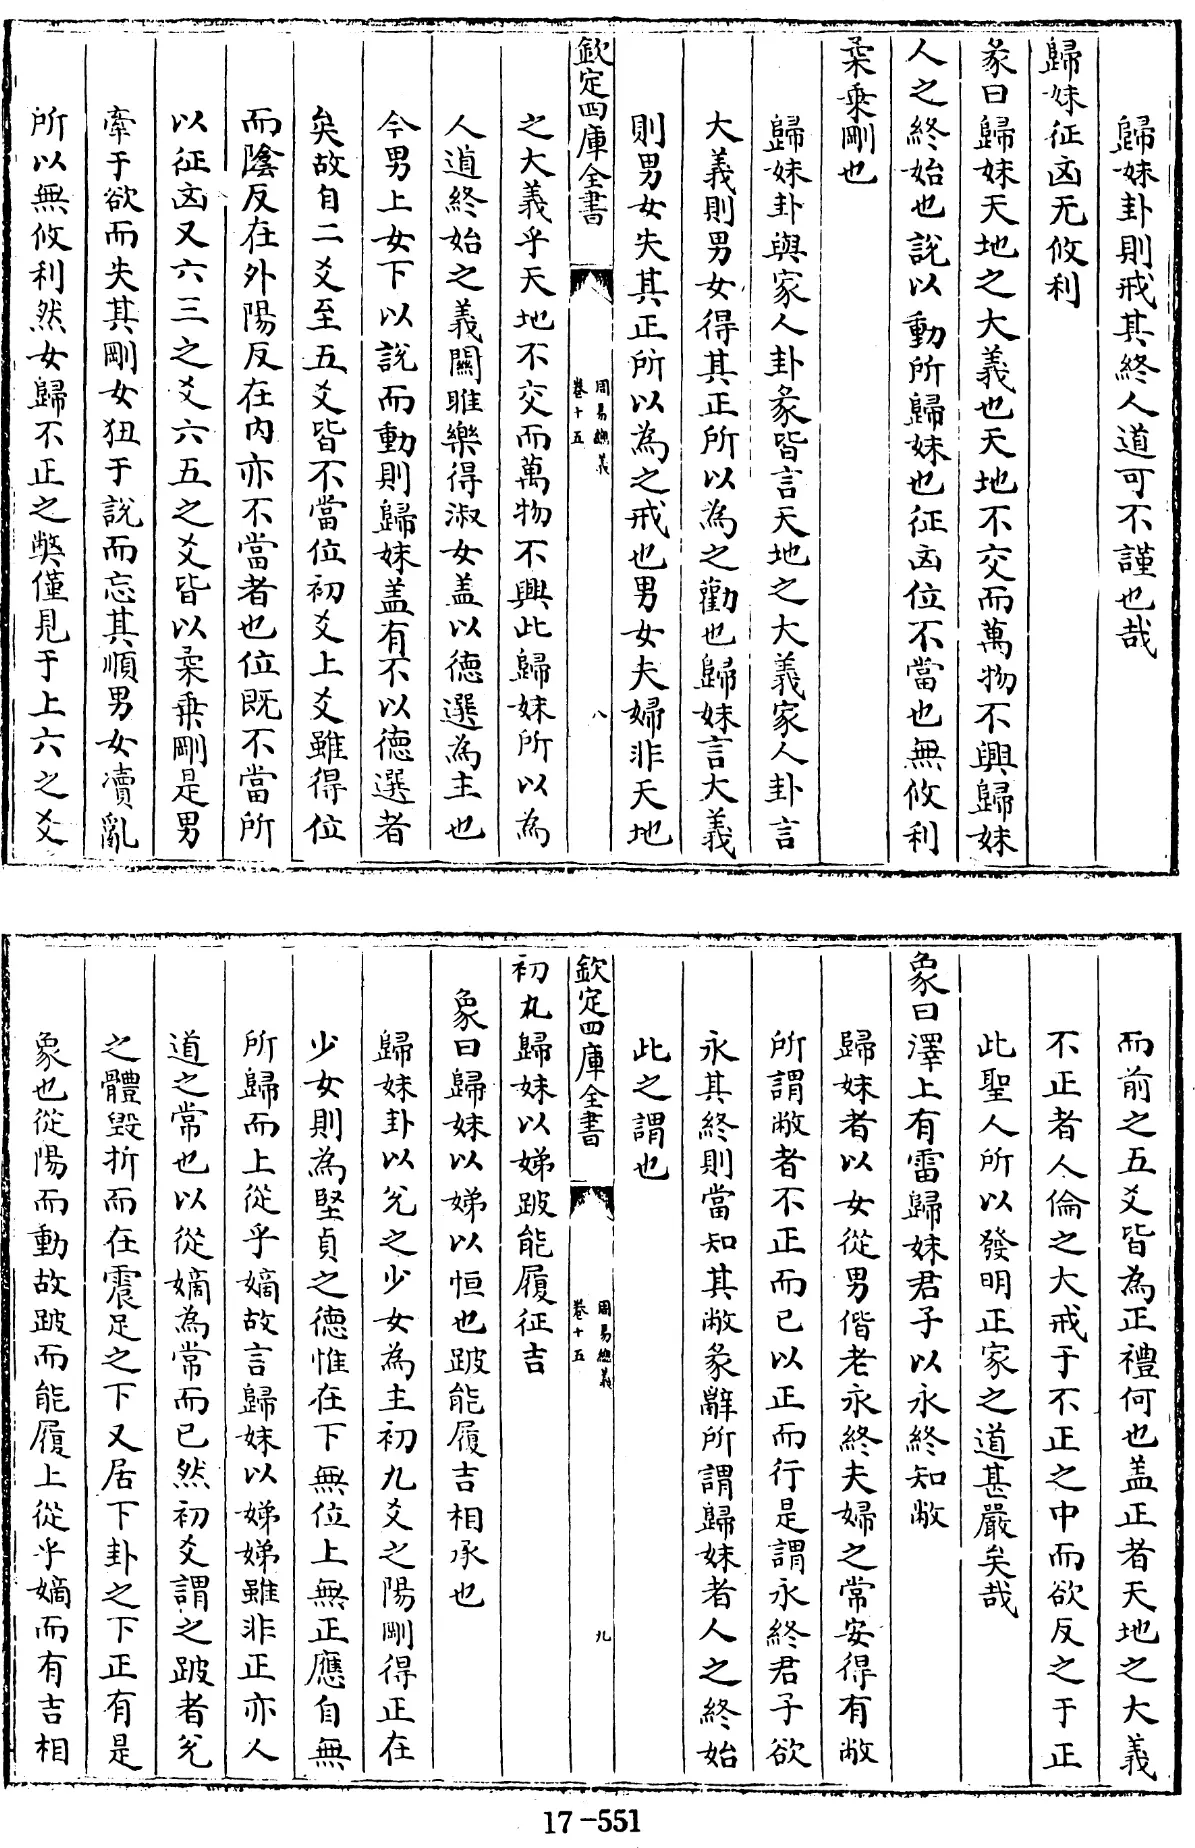 歸妹卦則戒其終人道可不謹也哉
歸妹征凶无攸利
彖曰歸妹天地之大義也天地不交而萬物不興歸妹
人之終始也說以動所歸妹也征凶位不當也無攸利
柔乗剛也
歸妹卦與家人卦彖皆言天地之大義家人卦言
大義則男女得其正所以為之勸也歸妹言大義
則男女失其正所以為之戒也男女夫婦非天地
欽定四庫全書
周易總義
卷十五
八
之大義乎天地不交而萬物不興此歸妹所以為
人道終始之義關雎樂得淑女盖以德選為主也
今男上女下以說而動則歸妹盖有不以德選者
矣故自二爻至五爻皆不當位初爻上爻雖得位
而陰反在外陽反在内亦不當者也位既不當所
以征凶又六三之爻六五之爻皆以柔乗剛是男
牽于欲而失其剛女狃于說而忘其順男女瀆亂
所以無攸利然女歸不正之弊僅見于上六之爻
而前之五爻皆為正禮何也盖正者天地之大義
不正者人倫之大戒于不正之中而欲反之于正
此聖人所以發明正家之道甚嚴矣哉
象曰澤上有雷歸妹君子以永終知敝
歸妹者以女從男偕老永終夫婦之常安得有敝
所謂敝者不正而已以正而行是謂永終君子欲
永其終則當知其敝彖辭所謂歸妹者人之終始
此之謂也
欽定四庫全書
周易總義
卷十五
九
初九歸妹以娣跛能履征吉
象曰歸妹以娣以恒也跛能履吉相承也
歸妹卦以兊之少女為主初九爻之陽剛得正在
少女則為堅貞之德惟在下無位上無正應自無
所歸而上從乎嫡故言歸妹以娣娣雖非正亦人
道之常也以從嫡為常而已然初爻謂之跛者兊
之體毀折而在震足之下又居下卦之下正有是
象也從陽而動故跛而能履上從乎嫡而有吉相
17-551